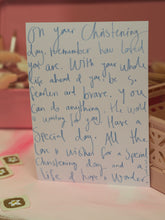 On your Christening
day, remember how loved
you are. With you whole
life ahead of you be so
fearless and brave. You
can do anything, the world
is waiting for you! Have a
Special day. All the
love & wishes for a Special
Christening day, and a
life of hope & Wonder